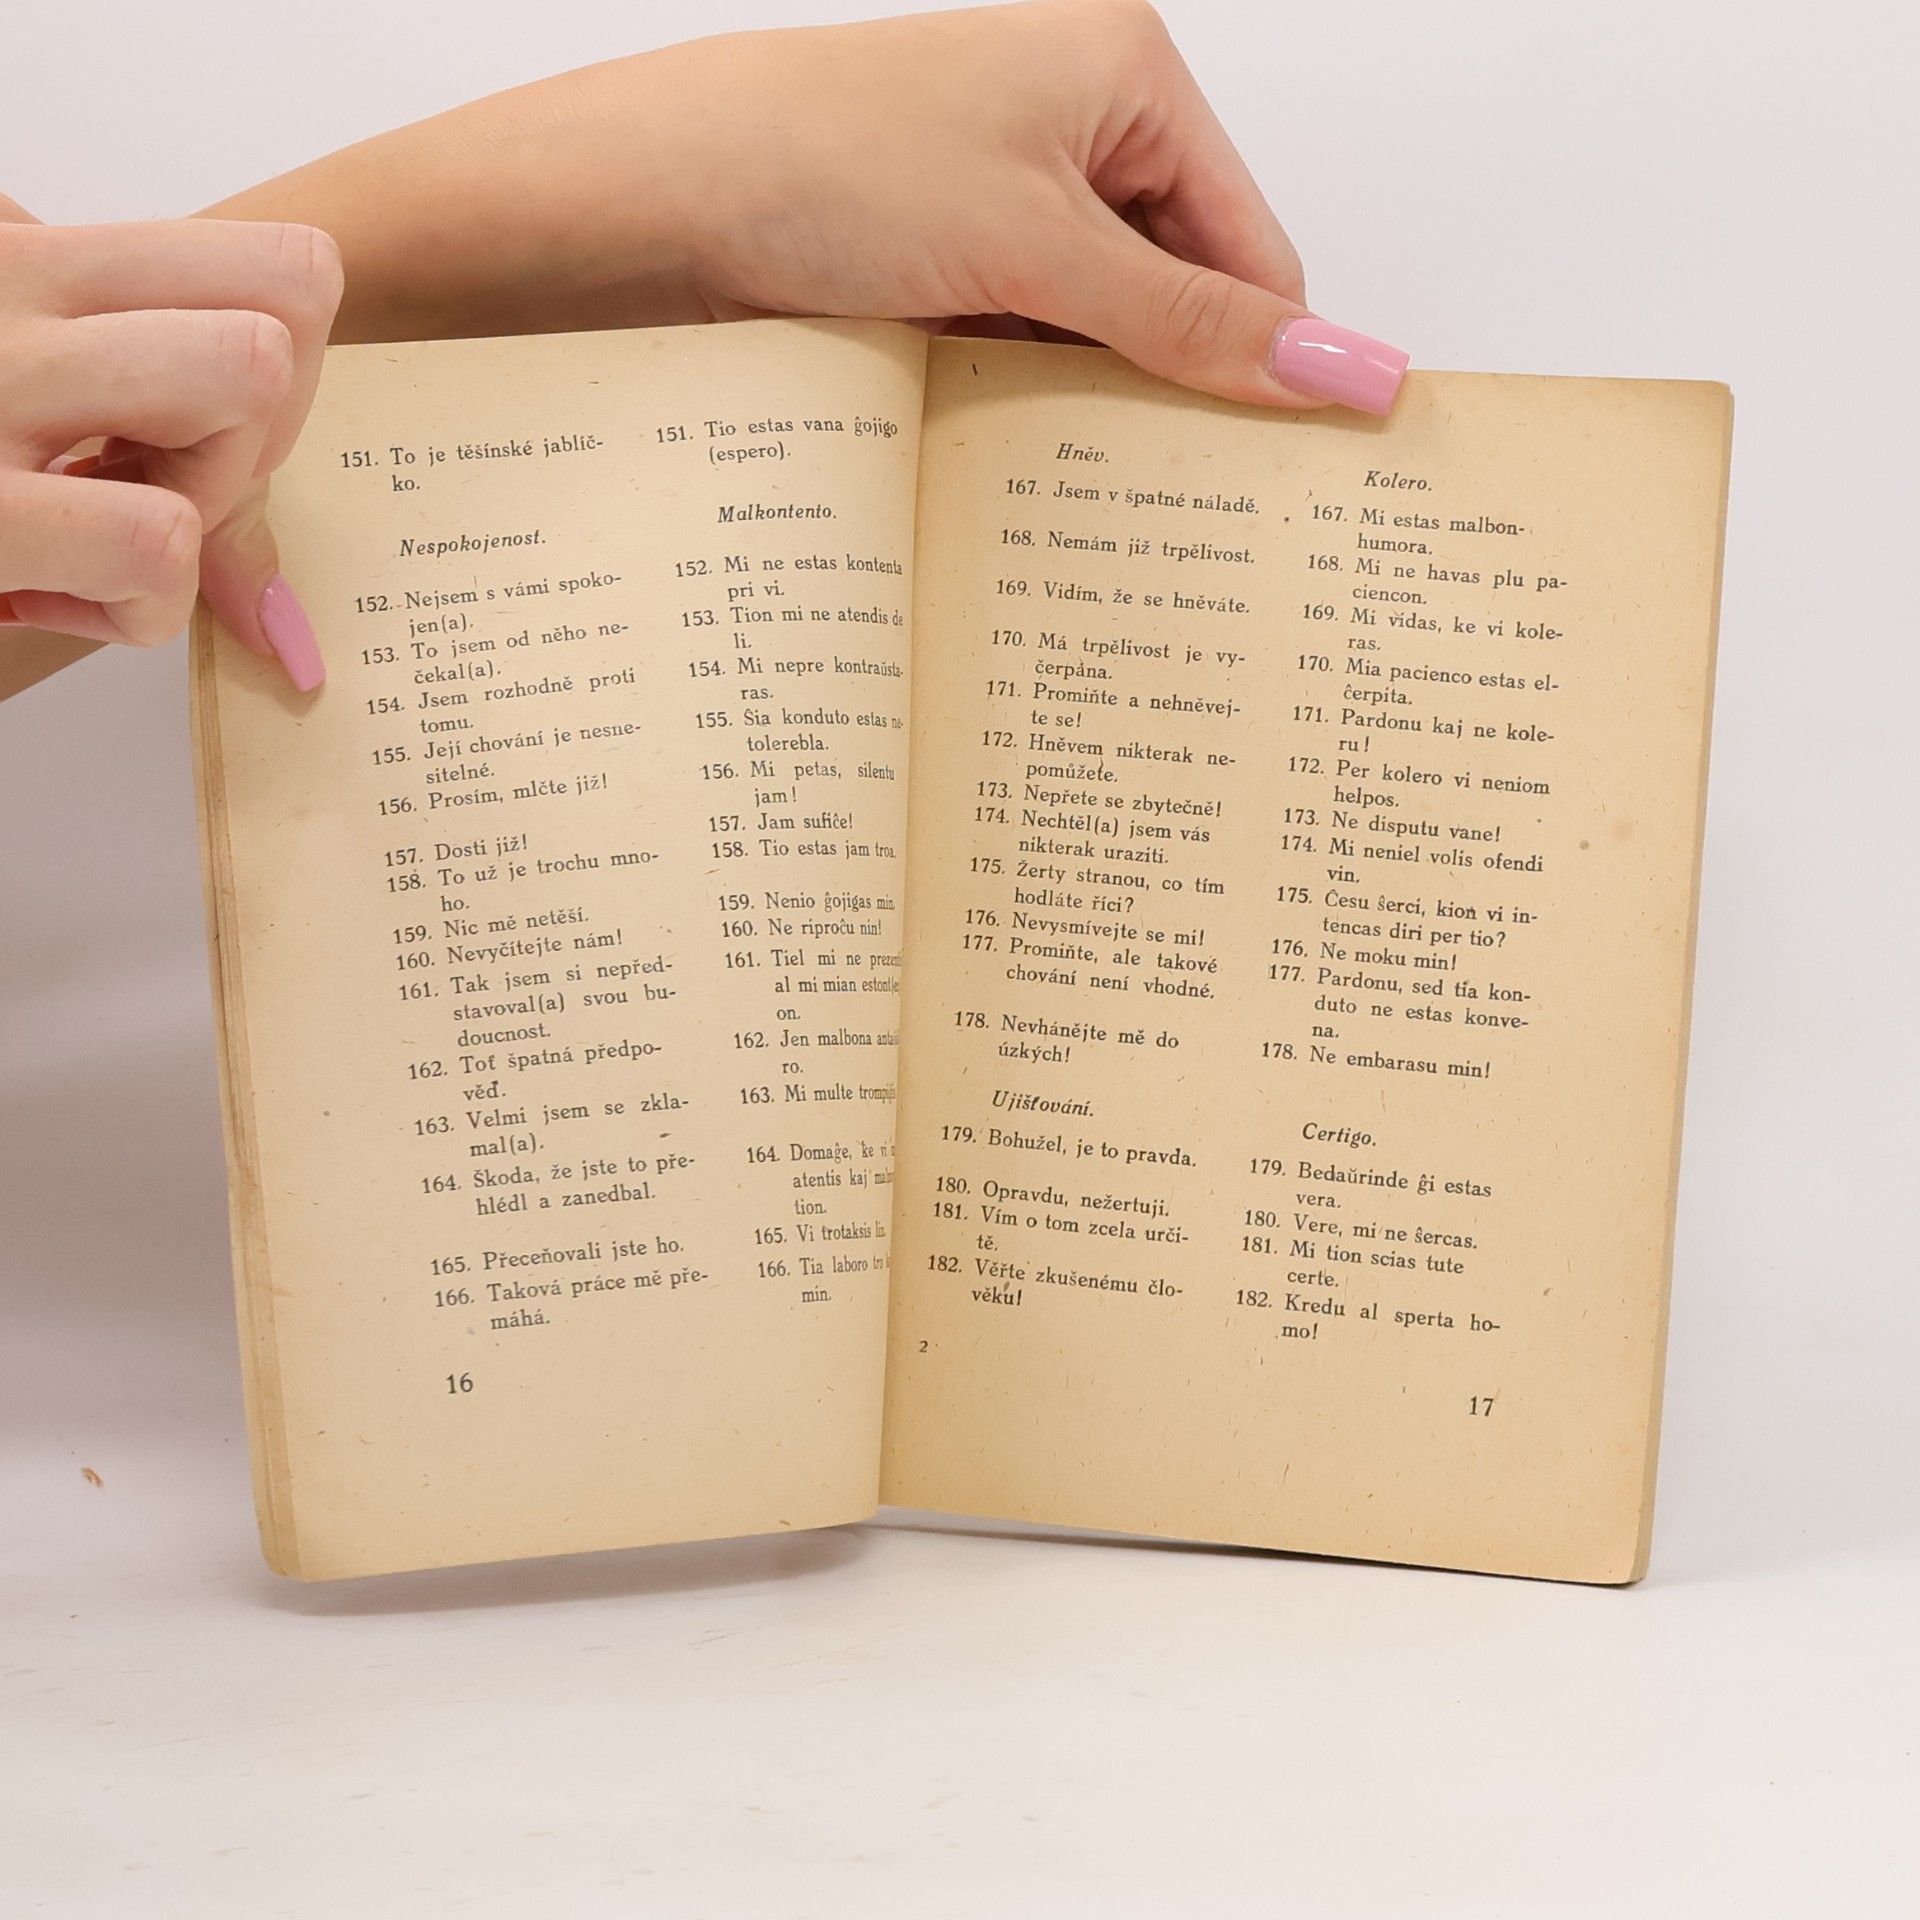 151. To je těšínské jablíč-
ko.
Nespokojenost.
152. Nejsem s vámi spoko-
jen(a).
153. To jsem od něho ne-
čekal(a).
154. Jsem rozhodně proti
tomu.
155. Její chování je nesne-
sitelné.
156. Prosím, mlčte již!
157. Dosti již!
158. To už je trochu mno-
ho.
159. Nic mě netěší.
160. Nevyčítejte nám!
161. Tak jsem si nepřed-
stavoval(a) svou bu-
doucnost.
162. Toť špatná předpo-
věď.
163. Velmi jsem se zkla-
mal(a).
164. Škoda, že jste to pře-
hlédl a zanedbal.
165. Přeceňovali jste ho.
166. Taková práce mě pře-
máhá.
16
151. Tio estas vana ĝojigo
(espero).
Malkontento.
152. Mi ne estas kontenta
pri vi.
153. Tion mi ne atendis de
li.
154. Mi nepre kontraŭsta-
ras.
155. Ŝia konduto estas ne-
tolerebla.
156. Mi petas, silentu
jam!
157. Jam sufiĉe!
158. Tio estas jam troa.
159. Nenio ĝojigas min.
160. Ne riproĉu nin!
161. Tiel mi ne
al mi mian
on.
162. Jen malbona
ro.
163. Mi multe
164. Domaĝe, ke vi
atentis kaj
tion.
165. Vi trotaksis lin.
166. Tia laboro tro
min.
Hněv.
167. Jsem v špatné náladě.
168. Nemám již trpělivost.
169. Vidím, že se hněváte.
170. Má trpělivost je vy-
čerpána.
171. Promiňte a nehněvej-
te se!
172. Hněvem nikterak ne-
pomůžete.
173. Nepřete se zbytečně!
174. Nechtěl(a) jsem vás
nikterak uraziti.
175. Žerty stranou, co tím
hodláte říci?
176. Nevysmívejte se mi!
177. Promiňte, ale takové
chování není vhodné.
178. Nevhánějte mě do
úzkých!
Ujišťování.
179. Bohužel, je to pravda.
180. Opravdu, nežertuji.
181. Vím o tom zcela urči-
tě.
182. Věřte zkušenému člo-
věku!
2
Kolero.
167. Mi estas malbon-
humora.
168. Mi ne havas plu pa-
ciencon.
169. Mi vidas, ke vi kole-
ras.
170. Mia pacienco estas el-
ĉerpita.
171. Pardonu kaj ne kole-
ru!
172. Per kolero vi neniom
helpos.
173. Ne disputu vane!
174. Mi neniel volis ofendi
vin.
175. Ĉesu ŝerci, kion vi in-
tencas diri per tio?
176. Ne moku min!
177. Pardonu, sed tia kon-
duto ne estas konve-
na.
178. Ne embarasu min!
Certigo.
179. Bedaŭrinde ĝi estas
vera.
180. Vere, mi ne ŝercas.
181. Mi tion scias tute
certe.
182. Kredu al sperta ho-
mo!
17